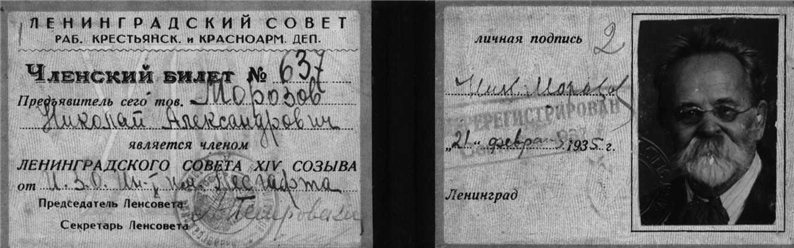 ЛЕНИНГРАДСКИЙ СОВЕТ
РАБ. КРЕСТЬЯНСК. и КРАСНОАРМ. ДЕП.
Членский билет № 637
Предъявитель сего тов. Морозов
Николай Александрович
является членом
ЛЕНИНГРАДСКОГО СОВЕТА XIV СОЗЫВА
от
Председатель Ленсовета
Секретарь Ленсовета
личная подпись 2
Ник. Морозов
ЗАРЕГИСТРИРОВАН
„21" февра 1935 г.
Ленинград